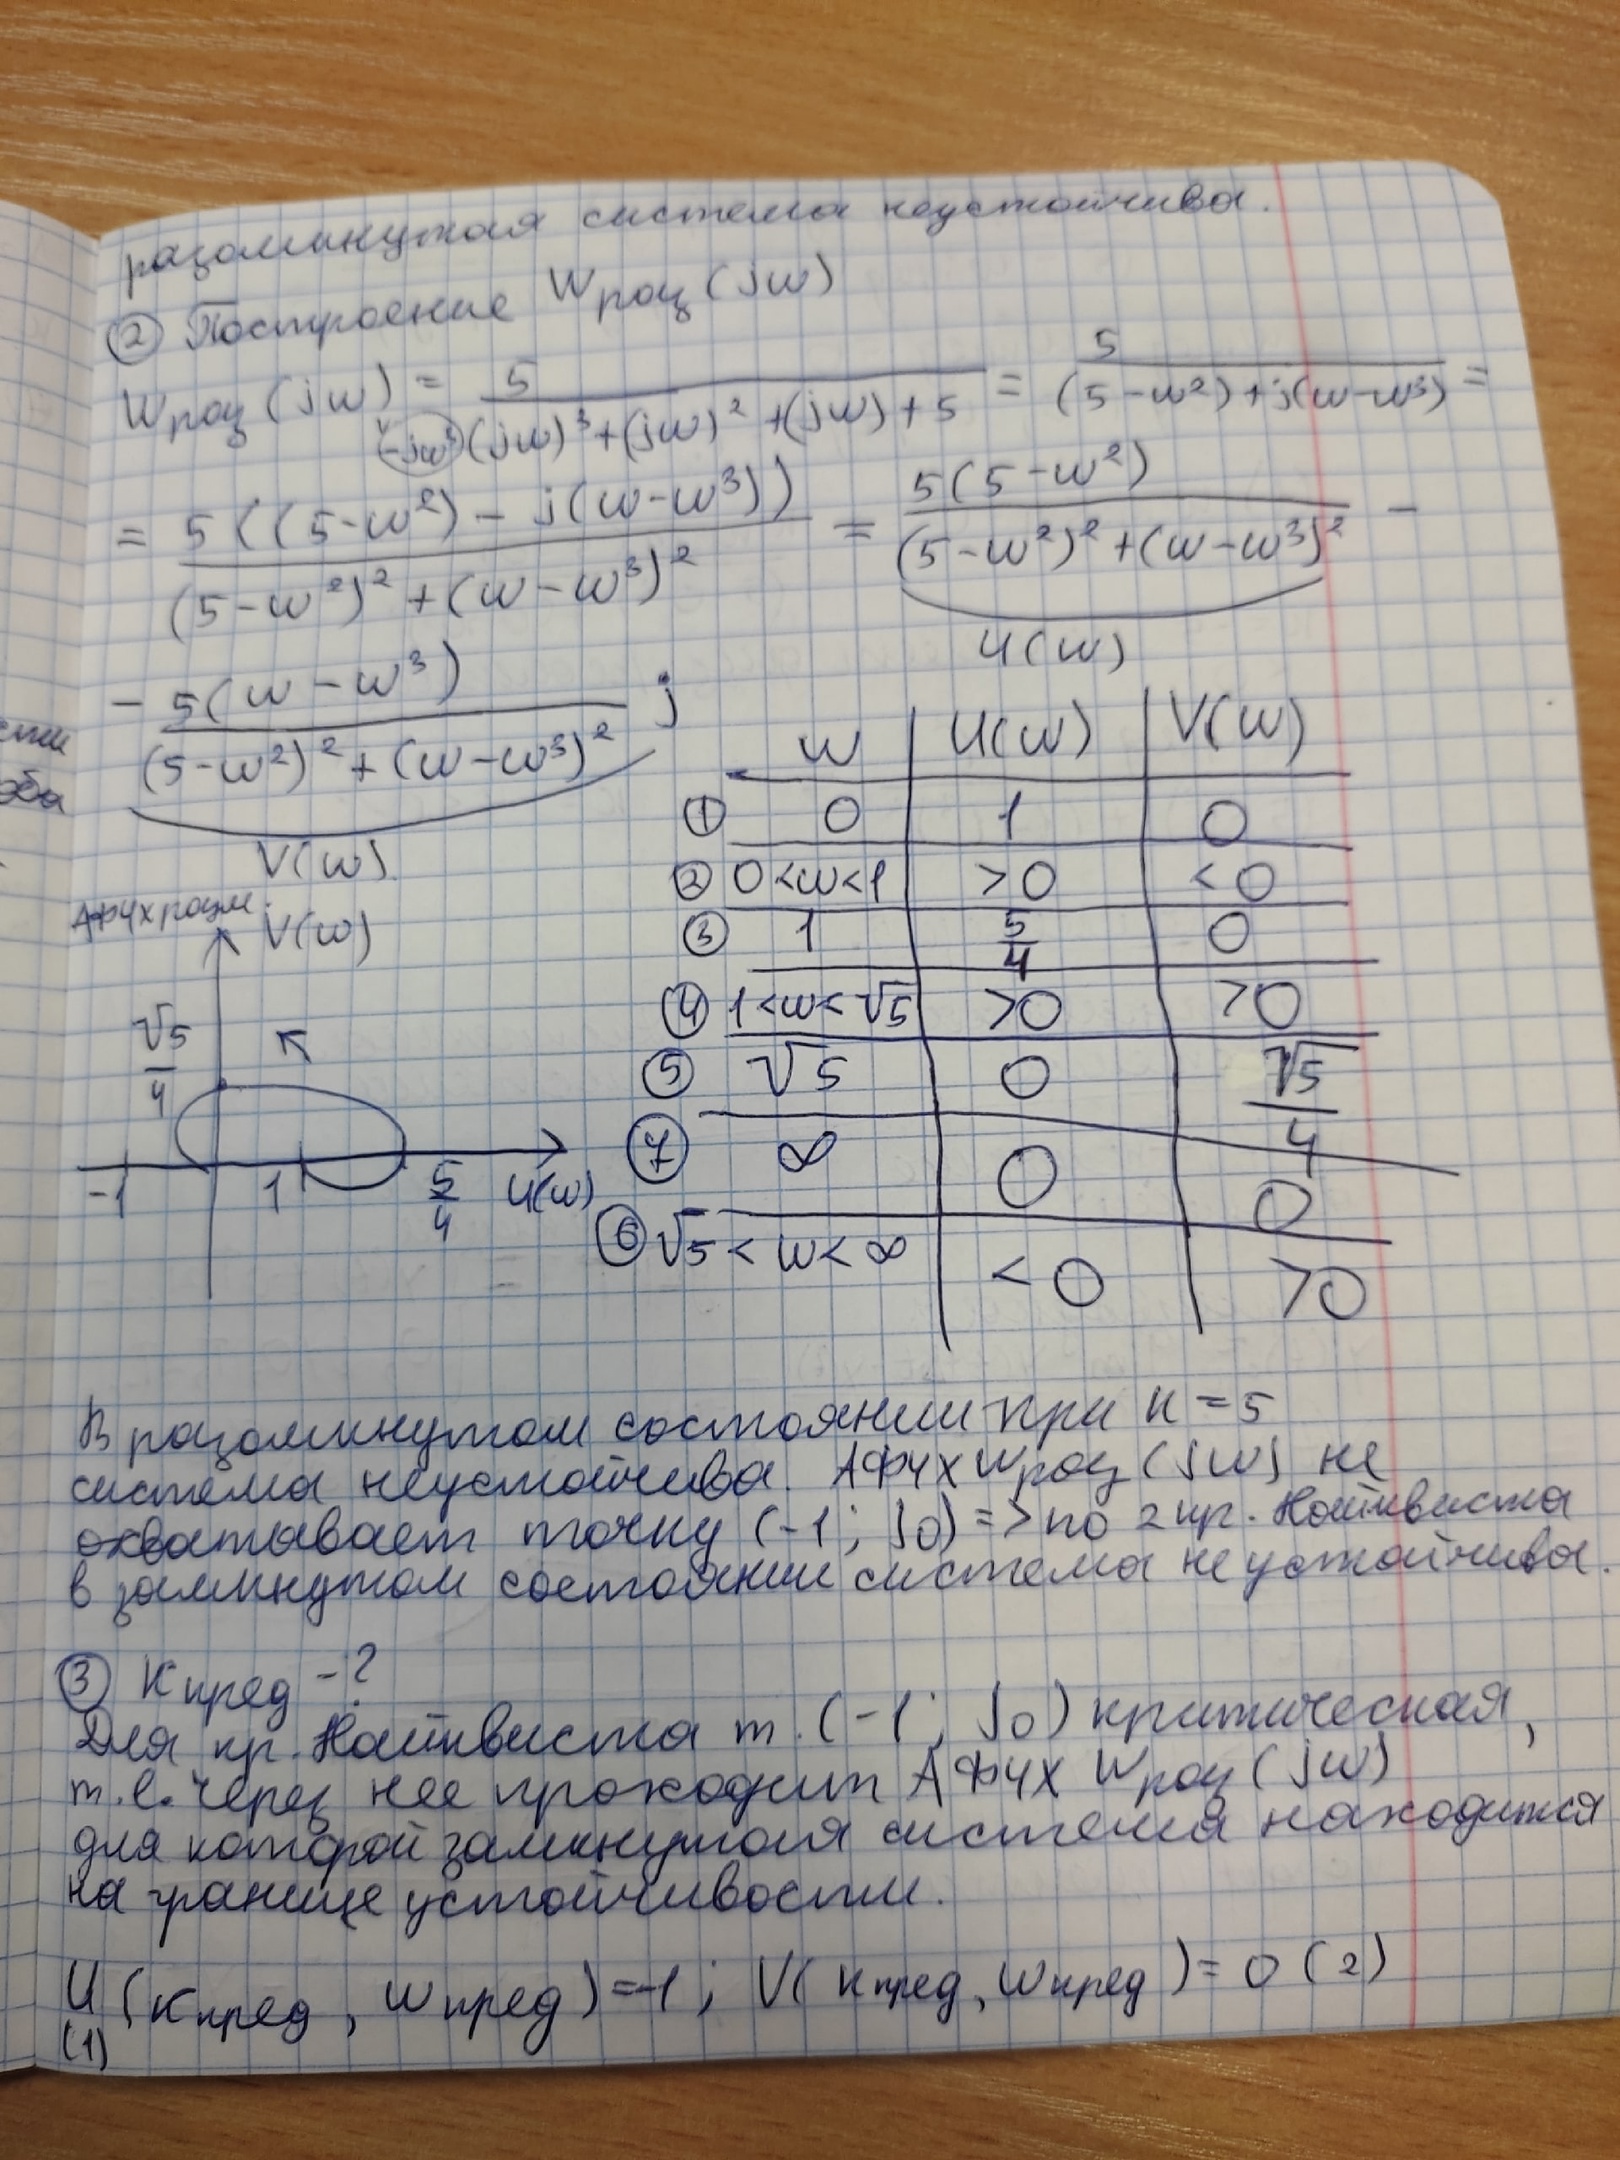 разомкнутая система неустойчива.
② Построение Wраз(jw)
Wраз(jw) = 5 / ((jw)³+(jw)²+(jw)+5) = 5 / ((5-w²)+j(w-w³)) =
-jw³
= 5((5-w²)-j(w-w³)) / ((5-w²)²+(w-w³)²) = 5(5-w²) / ((5-w²)²+(w-w³)²) -
U(w)
- 5(w-w³) / ((5-w²)²+(w-w³)²) j
V(w)
w | U(w) | V(w)
① 0 | 1 | 0
② 0<w<1 | >0 | <0
③ 1 | 5/4 | 0
④ 1<w<√5 | >0 | >0
⑤ √5 | 0 | √5/4
⑦ ∞ | 0 | 0
⑥ √5<w<∞ | <0 | >0
АФЧХ разм.
V(w)
√5/4
-1 1 5/4 U(w)
В разомкнутом состоянии при к = 5
система неустойчива. АФЧХ Wраз(jw) не
охватывает точку (-1; j0) => по 2 кр. Найквиста
в замкнутом состоянии система неустойчива.
③ Кпред - ?
Для кр. Найквиста т. (-1; j0) критическая,
т.е. через нее проходит АФЧХ Wраз(jw)
для которой замкнутая система находится
на границе устойчивости.
U(Кпред, wпред)=-1; V(Кпред, wпред)=0 (2)
(1)